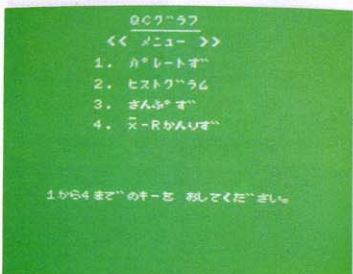 QCグラフ
<< メニュー >>
1. パレートず
2. ヒストグラム
3. さんぷず
4. x̄-Rかんりず
1から4までのキーを おしてください。